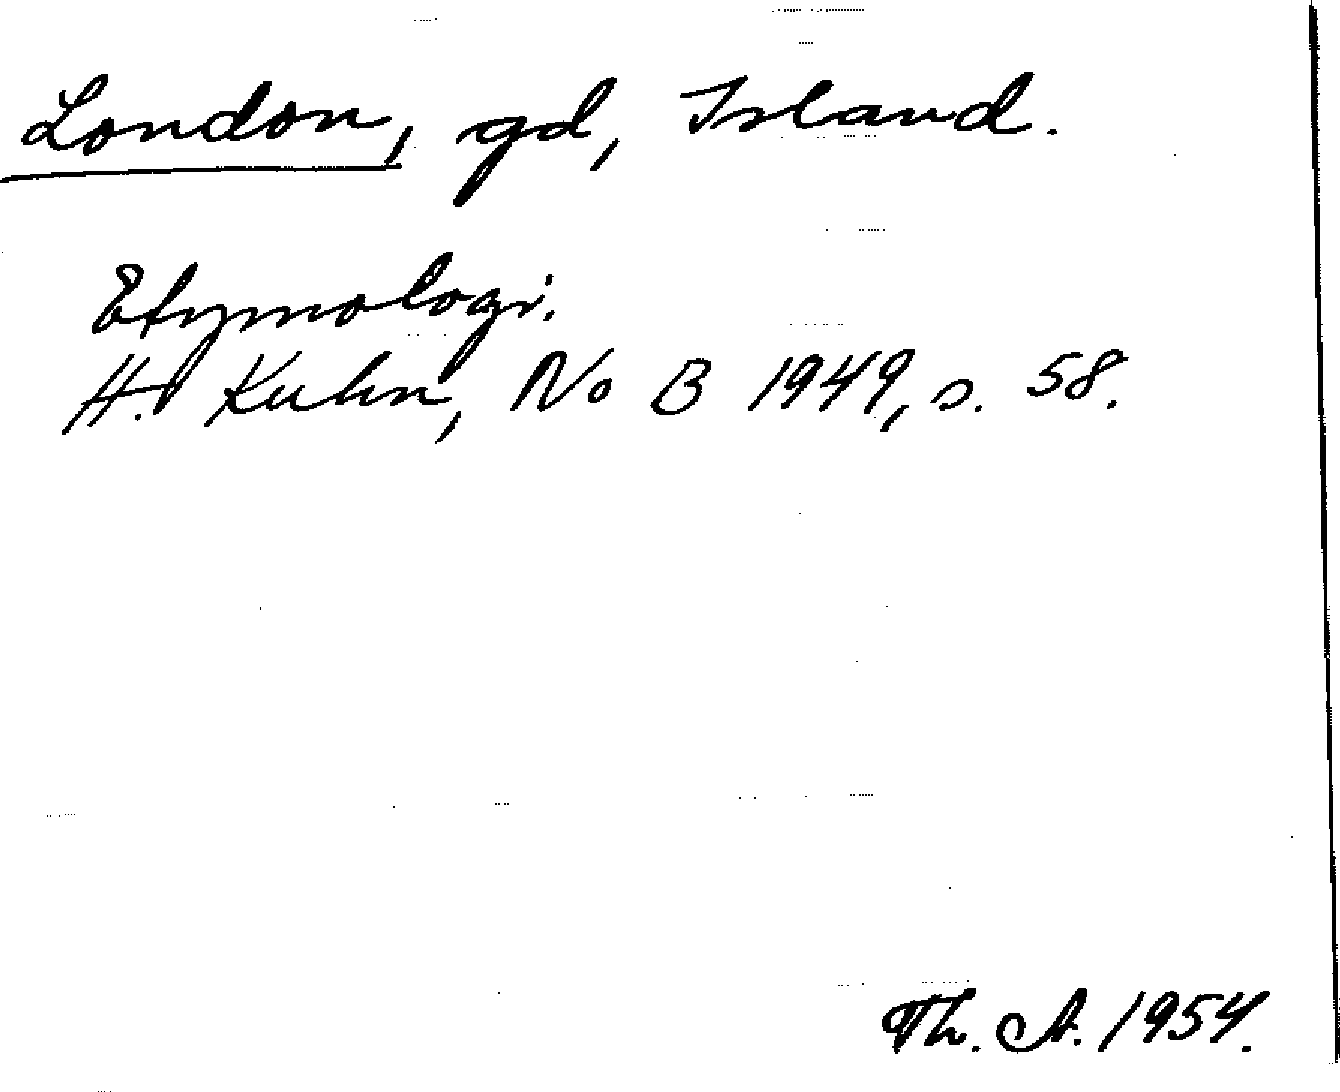 London, gd, Island.
Etymologi.
H. Kuhn, No B 1949, s. 58.
Th. A. 1954.